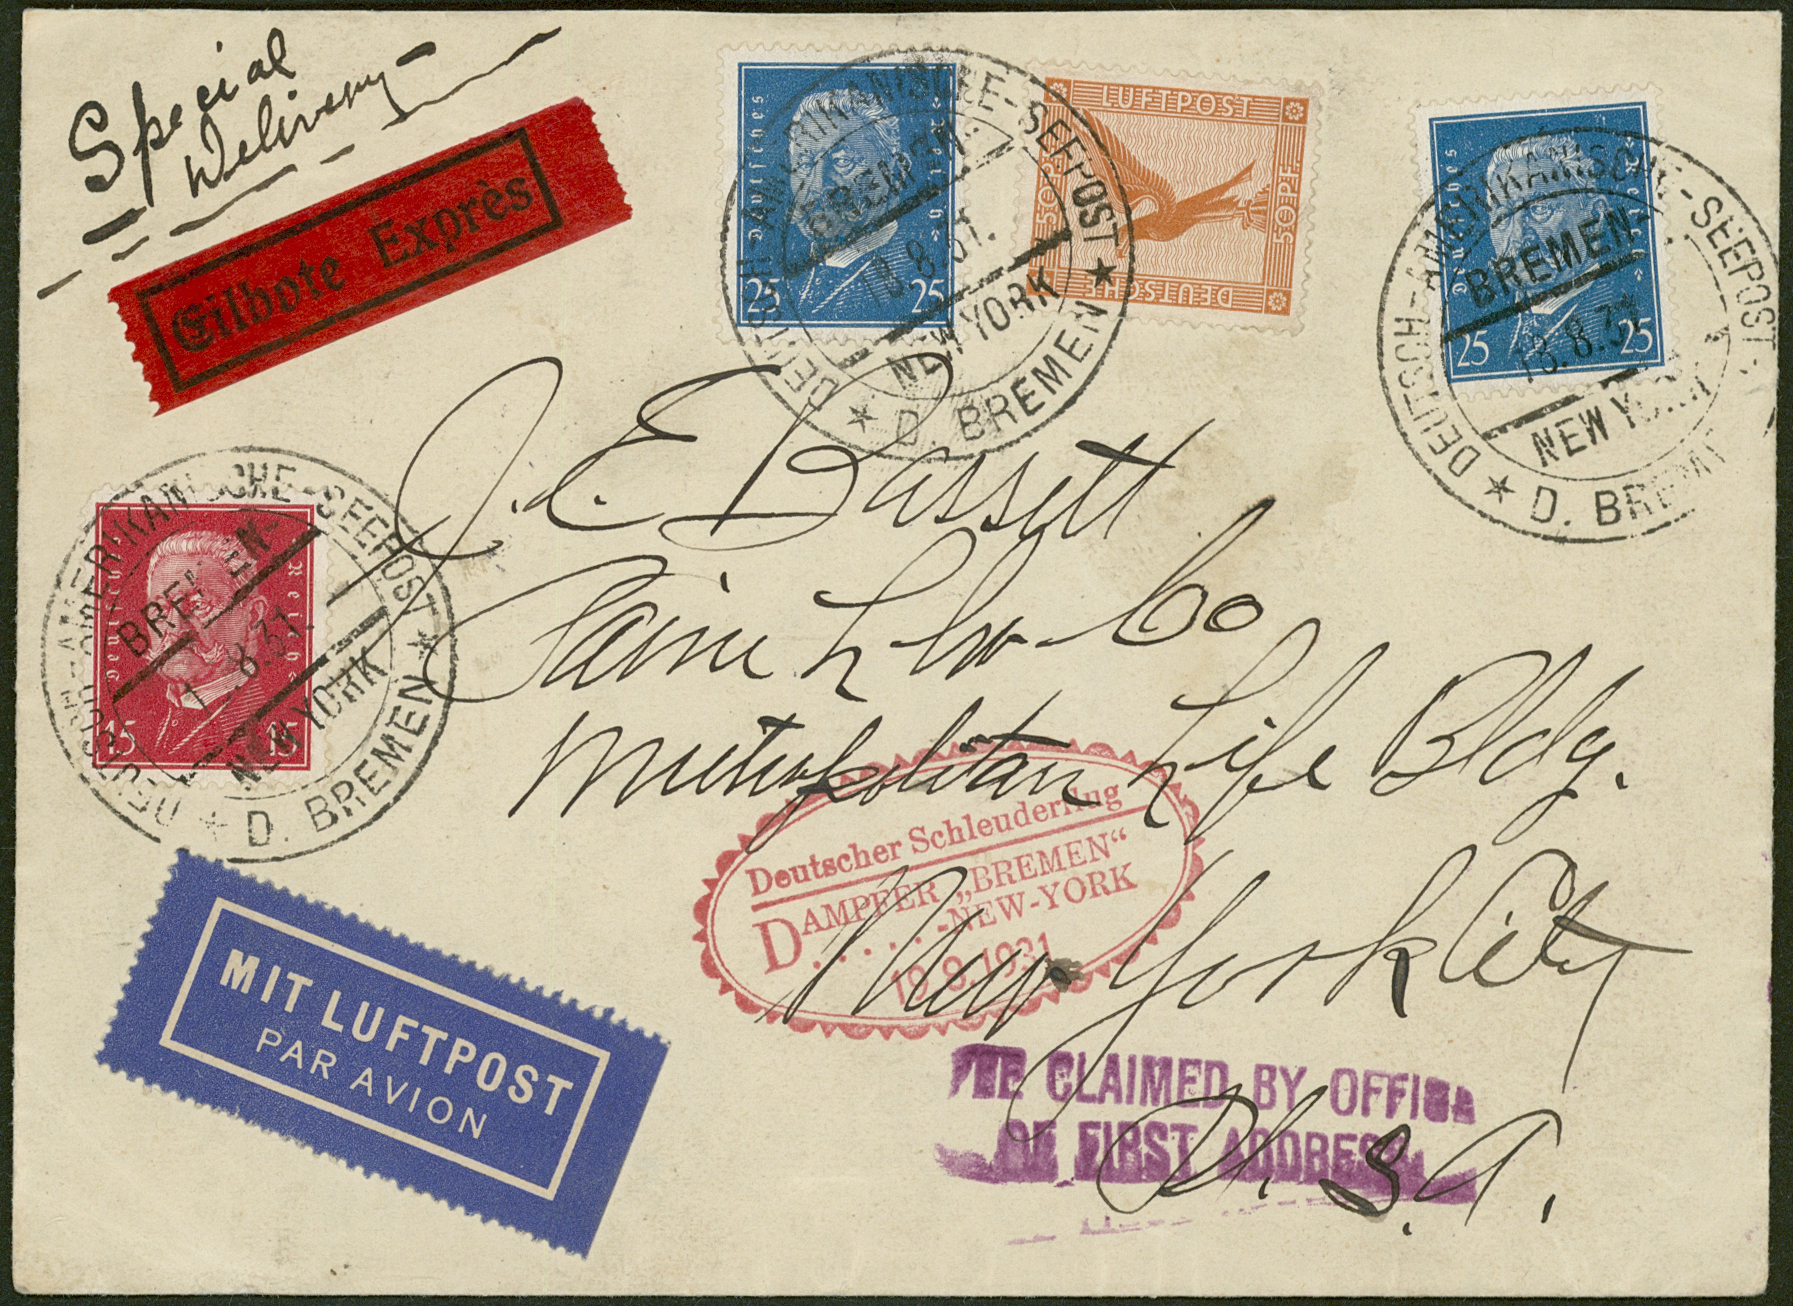 Special
Delivery
Eilbote Exprès
Deutsches
25 25
DEUTSCH-AMERIKANISCHE-SEEPOST
BREMEN-
18.8.31.
NEW YORK
★ D. BREMEN ★
LUFTPOST
50 PF. 50 PF.
DEUTSCHE
Deutsches
25 25
DEUTSCH-AMERIKANISCHE-SEEPOST
BREMEN-
18.8.31
NEW YORK
★ D. BREMEN
Deutsches Reich
DEUTSCH-AMERIKANISCHE-SEEPOST
BREMEN-
8.31.
NEW YORK
★ D. BREMEN ★
J. E. Bassett
Metropolitan Life Bldg.
New York City
U. S. A.
Deutscher Schleuderflug
DAMPFER „BREMEN“
-NEW-YORK
19.8.1931
MIT LUFTPOST
PAR AVION
CLAIMED BY OFFICE
OF FIRST ADDRESS